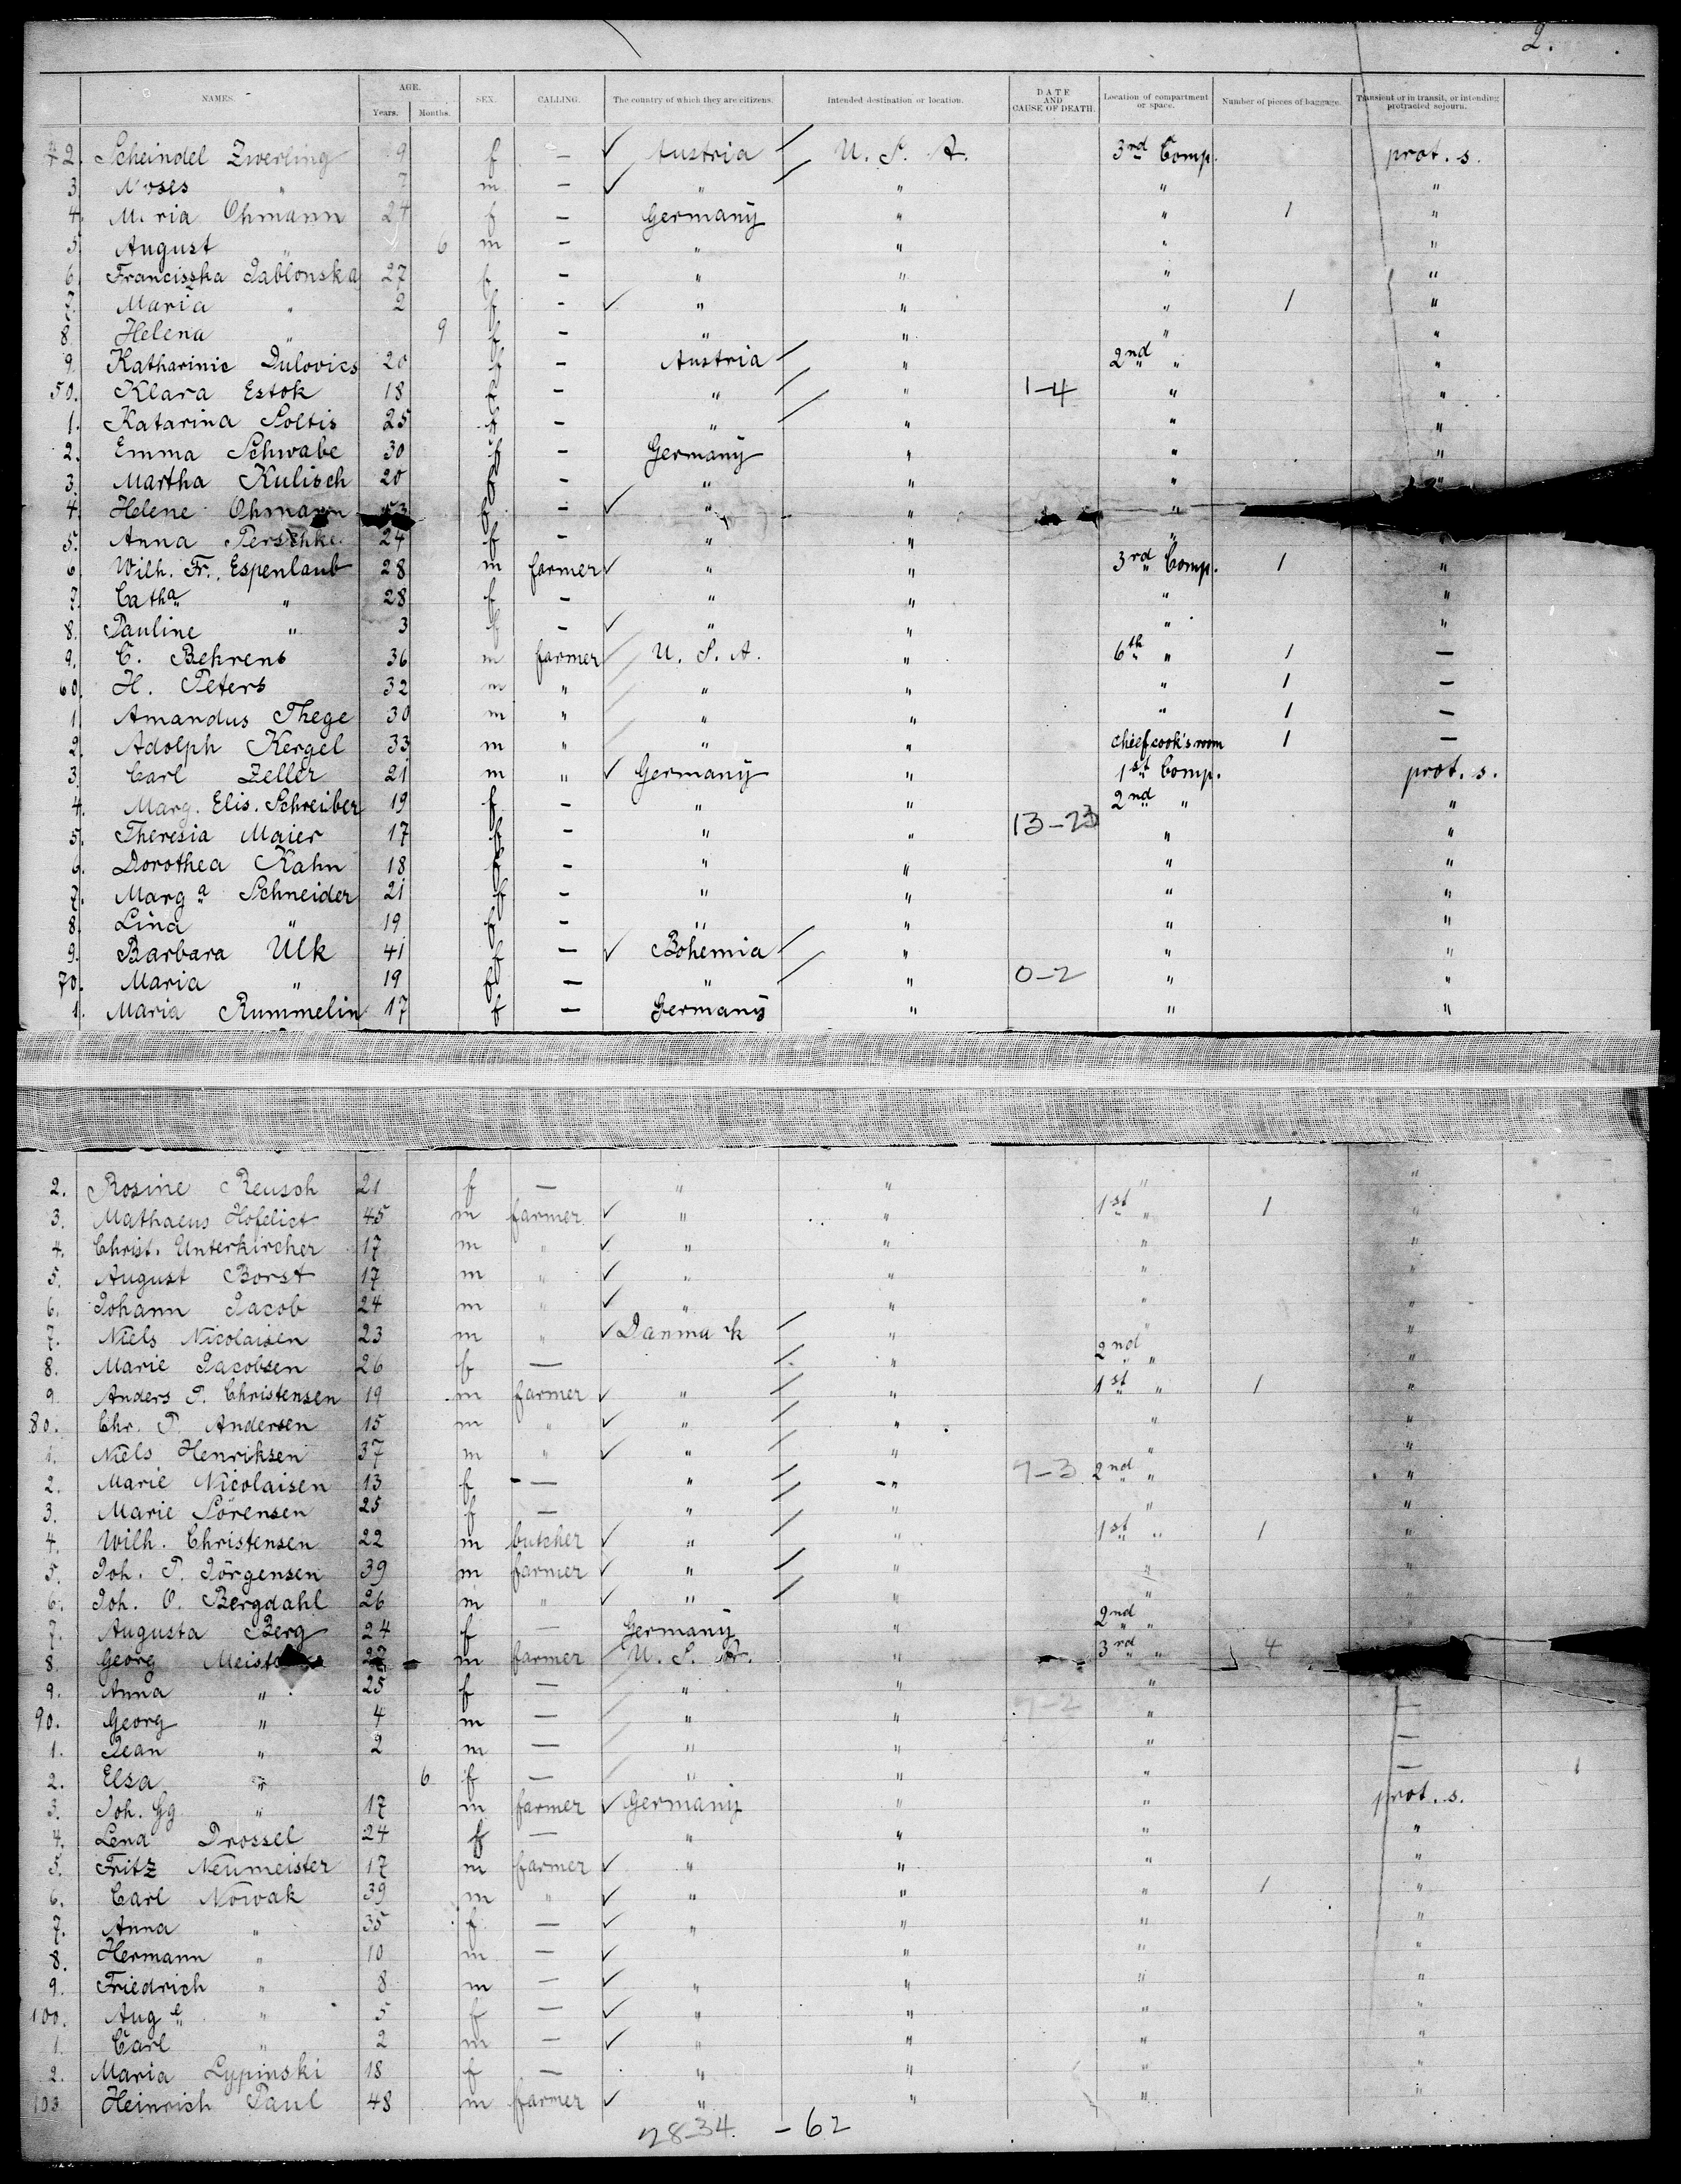 2.
NAMES. AGE. Years. Months. SEX. CALLING. The country of which they are citizens. Intended destination or location. DATE AND CAUSE OF DEATH. Location of compartment or space. Number of pieces of baggage. Transient or in transit, or intending protracted sojourn.
42. Scheindel Zwerling 9 f — ✓ Austria / U. S. A. 3rd Comp. prot. s.
3. Moses " 7 m — ✓ " / " " "
4. M ria Ohmann 24 f — Germany " " 1 "
5. August " 6 m — " " " "
6. Francisska Jablonska 27 f — " " " "
7. Maria " 2 f — ✓ " " " 1 "
8. Helena " 9 f — " " " "
9. Katharinie Dulovics 20 f — Austria / " 2nd " "
50. Klara Estok 18 f — " / " 1-4 " "
1. Katarina Soltis 25 f — " / " " "
2. Emma Schwabe 30 f — Germany " " "
3. Martha Kulisch 20 f — " " " "
4. Helene Ohmann 53 f — ✓ " " "
5. Anna Perschke 24 f — " " " "
6. Wilh. Fr. Espenlaub 28 m farmer ✓ " " 3rd Comp. 1 "
7. Catha " 28 f — " " " "
8. Pauline " 3 f — ✓ " " " "
9. C. Behrens 36 m farmer / U. S. A. " 6th " 1 —
60. H. Peters 32 m " / " " " 1 —
1. Amandus Thege 30 m " / " " " 1 —
2. Adolph Kergel 33 m " / " " chief cook's room 1 —
3. Carl Zeller 21 m " ✓ Germany " 1st Comp. prot. s.
4. Marg. Elis. Schreiber 19 f — " " 2nd " "
5. Theresia Maier 17 f — " " 13-23 " "
6. Dorothea Kahn 18 f — " " " "
7. Marga Schneider 21 f — " " " "
8. Lina " 19 f — " " " "
9. Barbara Ulk 41 f — ✓ Bohemia / " " "
70. Maria " 19 f — " / " 0-2 " "
1. Maria Rummelin 17 f — Germany " " "
2. Rosine Reusch 21 f — " " " "
3. Mathaeus Hofelict 45 m farmer ✓ " " 1st " 1 "
4. Christ. Unterkircher 17 m " ✓ " " " "
5. August Borst 17 m " ✓ " " " "
6. Johann Jacob 24 m " ✓ " " " "
7. Niels Nicolaisen 23 m " ✓ Danma k / " " "
8. Marie Jacobsen 26 f — / " 2nd " "
9. Anders P. Christensen 19 m farmer ✓ " / " 1st " 1 "
80. Chr. P. Andersen 15 m " ✓ " / " " "
1. Niels Henriksen 37 m " ✓ " / " " "
2. Marie Nicolaisen 13 f — " / " 7-3 2nd " "
3. Marie Sörensen 25 f — " / " " "
4. Wilh. Christensen 22 m butcher ✓ " / " 1st " 1 "
5. Joh. P. Jörgensen 39 m farmer ✓ " / " " "
6. Joh. O. Bergdahl 26 m " ✓ " / " " "
7. Augusta Berg 24 f — Germany " 2nd " "
8. Georg Meist m farmer / U. S. A. " 3rd " 4
9. Anna " 25 f — / " " "
90. Georg " 4 m — / " " 7-2 " —
1. Jean " 2 m — / " " " —
2. Elsa " 6 f — / " " " —
3. Joh. Gg. " 17 m farmer ✓ Germany " " prot. s.
4. Lena Drossel 24 f — " " " "
5. Fritz Neumeister 17 m farmer ✓ " " " "
6. Carl Nowak 39 m " ✓ " " " 1 "
7. Anna " 35 f — ✓ " " " "
8. Hermann " 10 m — ✓ " " "
9. Friedrich " 8 m — ✓ " " " "
100. Auge " 5 f — ✓ " " " "
1. Carl " 2 m — ✓ " " " "
2. Maria Lypinski 18 f — " " " "
103. Heinrich Paul 48 m farmer ✓ " " " "
28-34. - 62